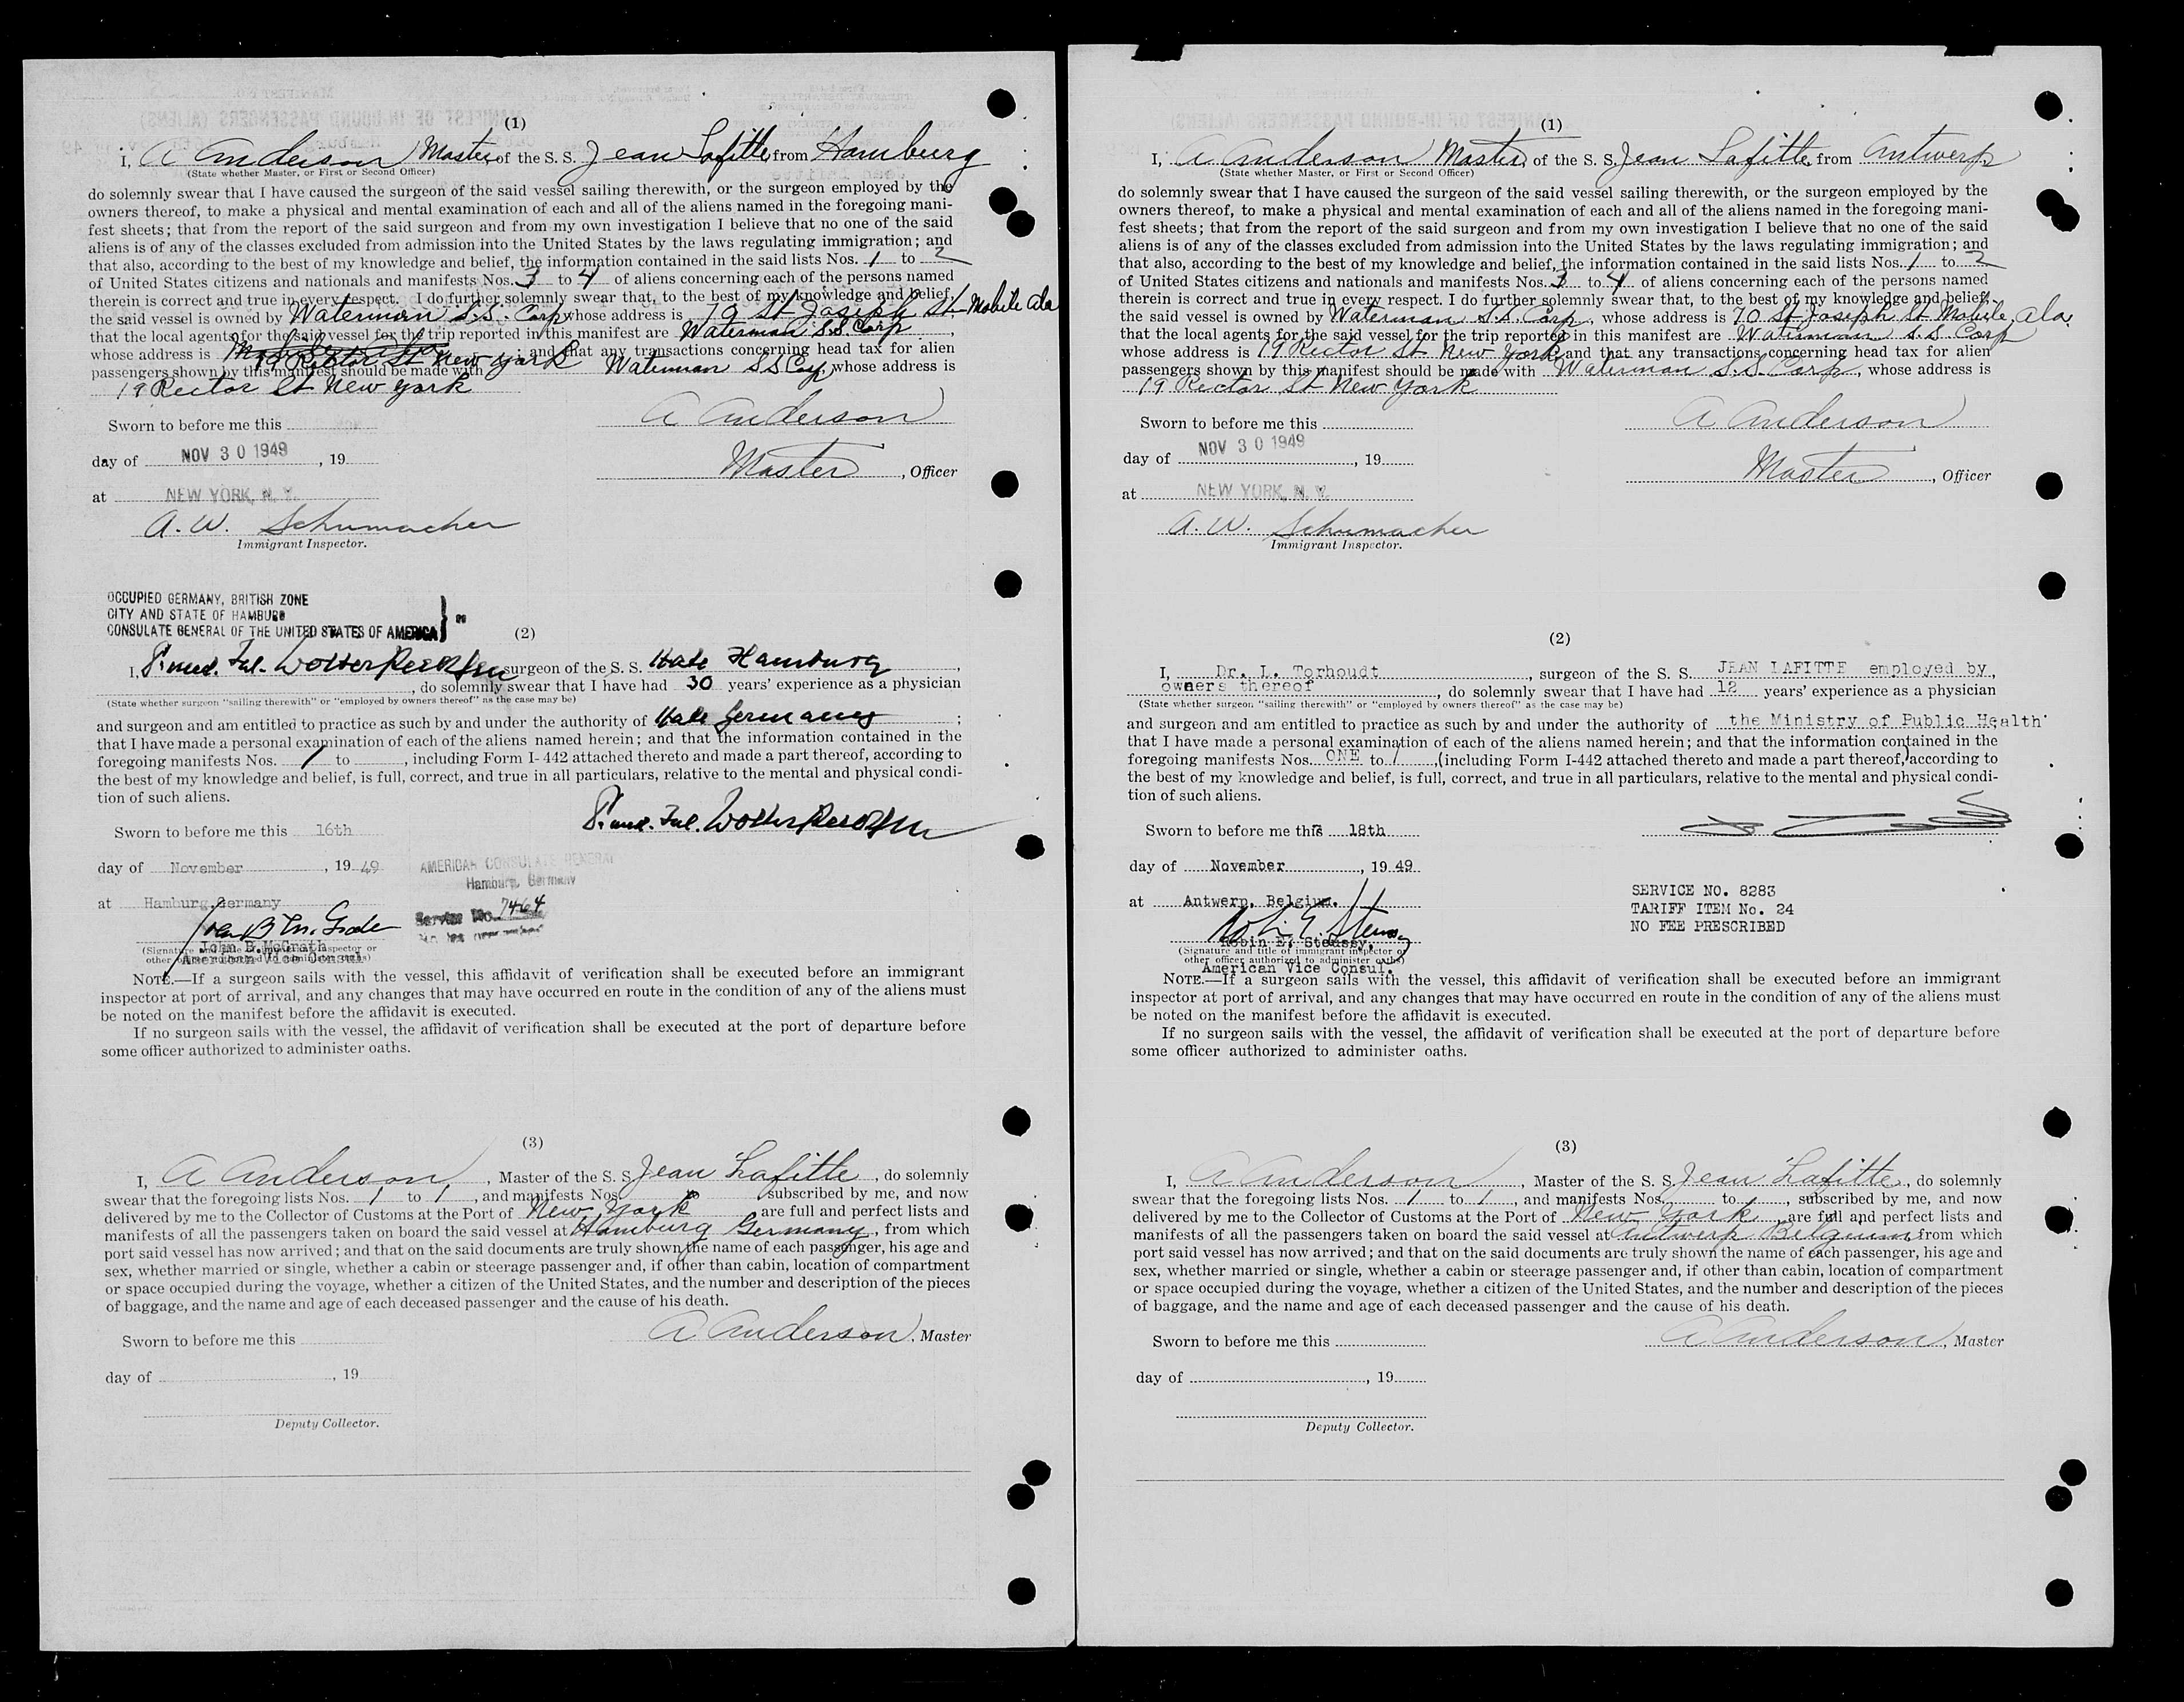 (1)
I, A Anderson Master, of the S. S. Jean Lafitte, from Hamburg
(State whether Master, or First or Second Officer)
do solemnly swear that I have caused the surgeon of the said vessel sailing therewith, or the surgeon employed by the
owners thereof, to make a physical and mental examination of each and all of the aliens named in the foregoing mani-
fest sheets; that from the report of the said surgeon and from my own investigation I believe that no one of the said
aliens is of any of the classes excluded from admission into the United States by the laws regulating immigration; and
that also, according to the best of my knowledge and belief, the information contained in the said lists Nos. 1 to 2
of United States citizens and nationals and manifests Nos. 3 to 4 of aliens concerning each of the persons named
therein is correct and true in every respect. I do further solemnly swear that, to the best of my knowledge and belief,
the said vessel is owned by Waterman S.S. Corp, whose address is 19 St Joseph St Mobile Ala
that the local agents for the said vessel for the trip reported in this manifest are Waterman S.S. Corp
whose address is 19 Rector St New York, and that any transactions concerning head tax for alien
passengers shown by this manifest should be made with Waterman S S Corp, whose address is
19 Rector St New York
Sworn to before me this
A Anderson
day of NOV 30 1949, 19
Master, Officer
at NEW YORK, N. Y.
A. W. Schumacher
Immigrant Inspector.
OCCUPIED GERMANY, BRITISH ZONE
CITY AND STATE OF HAMBURG
CONSULATE GENERAL OF THE UNITED STATES OF AMERICA
(2)
I, surgeon of the S. S. Hamburg,
, do solemnly swear that I have had 30 years' experience as a physician
(State whether surgeon "sailing therewith" or "employed by owners thereof" as the case may be)
and surgeon and am entitled to practice as such by and under the authority of Germany;
that I have made a personal examination of each of the aliens named herein; and that the information contained in the
foregoing manifests Nos. 1 to , including Form I-442 attached thereto and made a part thereof, according to
the best of my knowledge and belief, is full, correct, and true in all particulars, relative to the mental and physical condi-
tion of such aliens.
Sworn to before me this 16th
day of November, 19 49
AMERICAN CONSULATE GENERAL
Hamburg, Germany
at Hamburg, Germany
Service No. 7464
John B. McGrath
(Signature and title of immigrant inspector or
other officer authorized to administer oaths)
American Vice Consul
NOTE.—If a surgeon sails with the vessel, this affidavit of verification shall be executed before an immigrant
inspector at port of arrival, and any changes that may have occurred en route in the condition of any of the aliens must
be noted on the manifest before the affidavit is executed.
If no surgeon sails with the vessel, the affidavit of verification shall be executed at the port of departure before
some officer authorized to administer oaths.
(3)
I, A Anderson, Master of the S. S. Jean Lafitte, do solemnly
swear that the foregoing lists Nos. 1 to 1, and manifests Nos. subscribed by me, and now
delivered by me to the Collector of Customs at the Port of New York are full and perfect lists and
manifests of all the passengers taken on board the said vessel at Hamburg Germany, from which
port said vessel has now arrived; and that on the said documents are truly shown the name of each passenger, his age and
sex, whether married or single, whether a cabin or steerage passenger and, if other than cabin, location of compartment
or space occupied during the voyage, whether a citizen of the United States, and the number and description of the pieces
of baggage, and the name and age of each deceased passenger and the cause of his death.
Sworn to before me this
A Anderson, Master
day of , 19
Deputy Collector.
(1)
I, A Anderson Master, of the S. S. Jean Lafitte, from Antwerp
(State whether Master, or First or Second Officer)
do solemnly swear that I have caused the surgeon of the said vessel sailing therewith, or the surgeon employed by the
owners thereof, to make a physical and mental examination of each and all of the aliens named in the foregoing mani-
fest sheets; that from the report of the said surgeon and from my own investigation I believe that no one of the said
aliens is of any of the classes excluded from admission into the United States by the laws regulating immigration; and
that also, according to the best of my knowledge and belief, the information contained in the said lists Nos. 1 to 2
of United States citizens and nationals and manifests Nos. 3 to 4 of aliens concerning each of the persons named
therein is correct and true in every respect. I do further solemnly swear that, to the best of my knowledge and belief,
the said vessel is owned by Waterman S.S. Corp, whose address is 70 St Joseph St Mobile, Ala.
that the local agents for the said vessel for the trip reported in this manifest are Waterman S S Corp
whose address is 19 Rector St New York and that any transactions concerning head tax for alien
passengers shown by this manifest should be made with Waterman S.S. Corp, whose address is
19 Rector St New York
Sworn to before me this
A Anderson
day of NOV 30 1949, 19
Master, Officer
at NEW YORK, N. Y.
A. W. Schumacher
Immigrant Inspector.
(2)
I, Dr. L. Torhoudt, surgeon of the S. S. JEAN LAFITTE employed by,
owners thereof, do solemnly swear that I have had 12 years' experience as a physician
(State whether surgeon "sailing therewith" or "employed by owners thereof" as the case may be)
and surgeon and am entitled to practice as such by and under the authority of the Ministry of Public Health
that I have made a personal examination of each of the aliens named herein; and that the information contained in the
foregoing manifests Nos. ONE to 1, (including Form I-442 attached thereto and made a part thereof,) according to
the best of my knowledge and belief, is full, correct, and true in all particulars, relative to the mental and physical condi-
tion of such aliens.
Sworn to before me this 18th
day of November, 19 49
at Antwerp, Belgium.
SERVICE NO. 8283
TARIFF ITEM No. 24
NO FEE PRESCRIBED
Robin E. Steussy,
(Signature and title of immigrant inspector or
other officer authorized to administer oaths)
American Vice Consul.
NOTE.—If a surgeon sails with the vessel, this affidavit of verification shall be executed before an immigrant
inspector at port of arrival, and any changes that may have occurred en route in the condition of any of the aliens must
be noted on the manifest before the affidavit is executed.
If no surgeon sails with the vessel, the affidavit of verification shall be executed at the port of departure before
some officer authorized to administer oaths.
(3)
I, A Anderson, Master of the S. S. Jean Lafitte, do solemnly
swear that the foregoing lists Nos. 1 to 1, and manifests Nos. to , subscribed by me, and now
delivered by me to the Collector of Customs at the Port of New York are full and perfect lists and
manifests of all the passengers taken on board the said vessel at Antwerp Belgium, from which
port said vessel has now arrived; and that on the said documents are truly shown the name of each passenger, his age and
sex, whether married or single, whether a cabin or steerage passenger and, if other than cabin, location of compartment
or space occupied during the voyage, whether a citizen of the United States, and the number and description of the pieces
of baggage, and the name and age of each deceased passenger and the cause of his death.
Sworn to before me this
A Anderson, Master
day of , 19
Deputy Collector.